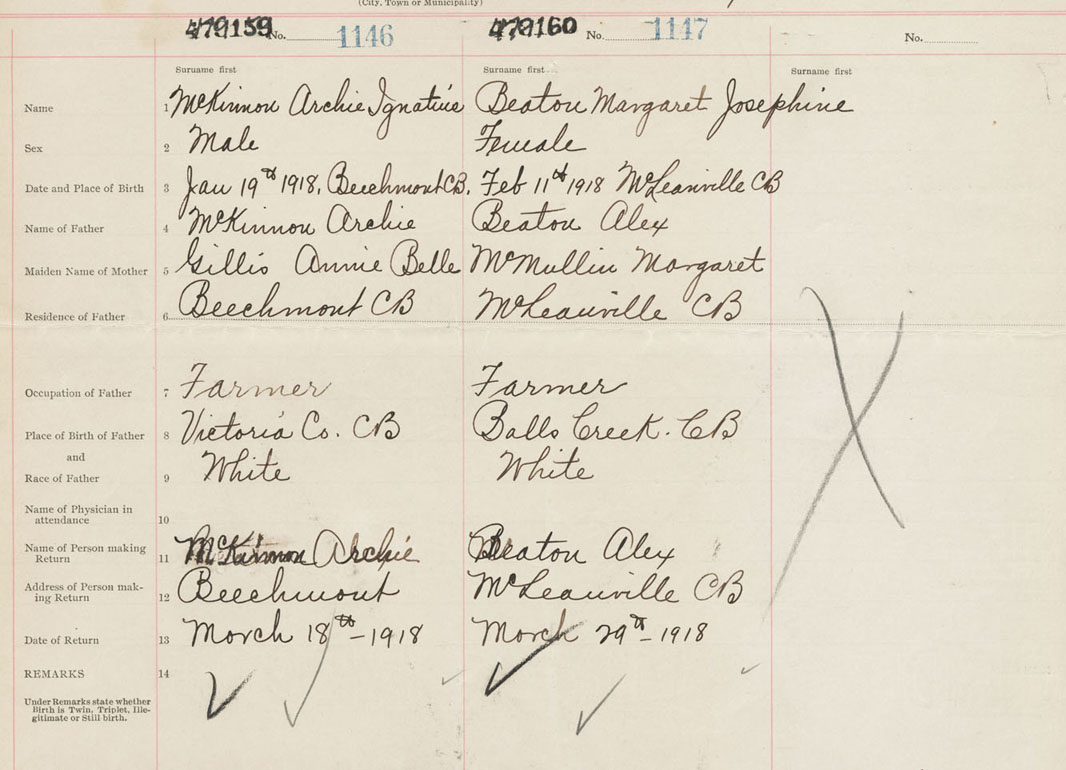 (City, Town or Municipality)
479159 No. 1146 479160 No. 1147 No.
Surname first Surname first Surname first
Name 1 McKinnon Archie Ignatius Beaton Margaret Josephine
Sex 2 Male Female
Date and Place of Birth 3 Jan 19th 1918, Beechmont CB. Feb 11th 1918 McLeanville CB
Name of Father 4 McKinnon Archie Beaton Alex
Maiden Name of Mother 5 Gillis Annie Belle McMullin Margaret
Residence of Father 6 Beechmont CB McLeanville CB
Occupation of Father 7 Farmer Farmer
Place of Birth of Father 8 Victoria Co. CB Balls Creek. CB
and
Race of Father 9 White White
Name of Physician in
attendance 10
Name of Person making
Return 11 McKinnon Archie Beaton Alex
Address of Person mak-
ing Return 12 Beechmont McLeanville CB
Date of Return 13 March 18th - 1918 March 29th - 1918
REMARKS 14
Under Remarks state whether
Birth is Twin, Triplet, Ille-
gitimate or Still birth.